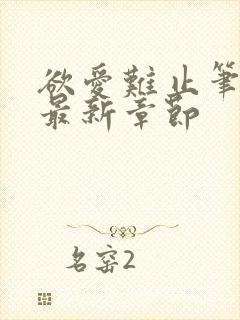 欲爱難止筆
最新章節
名窑2